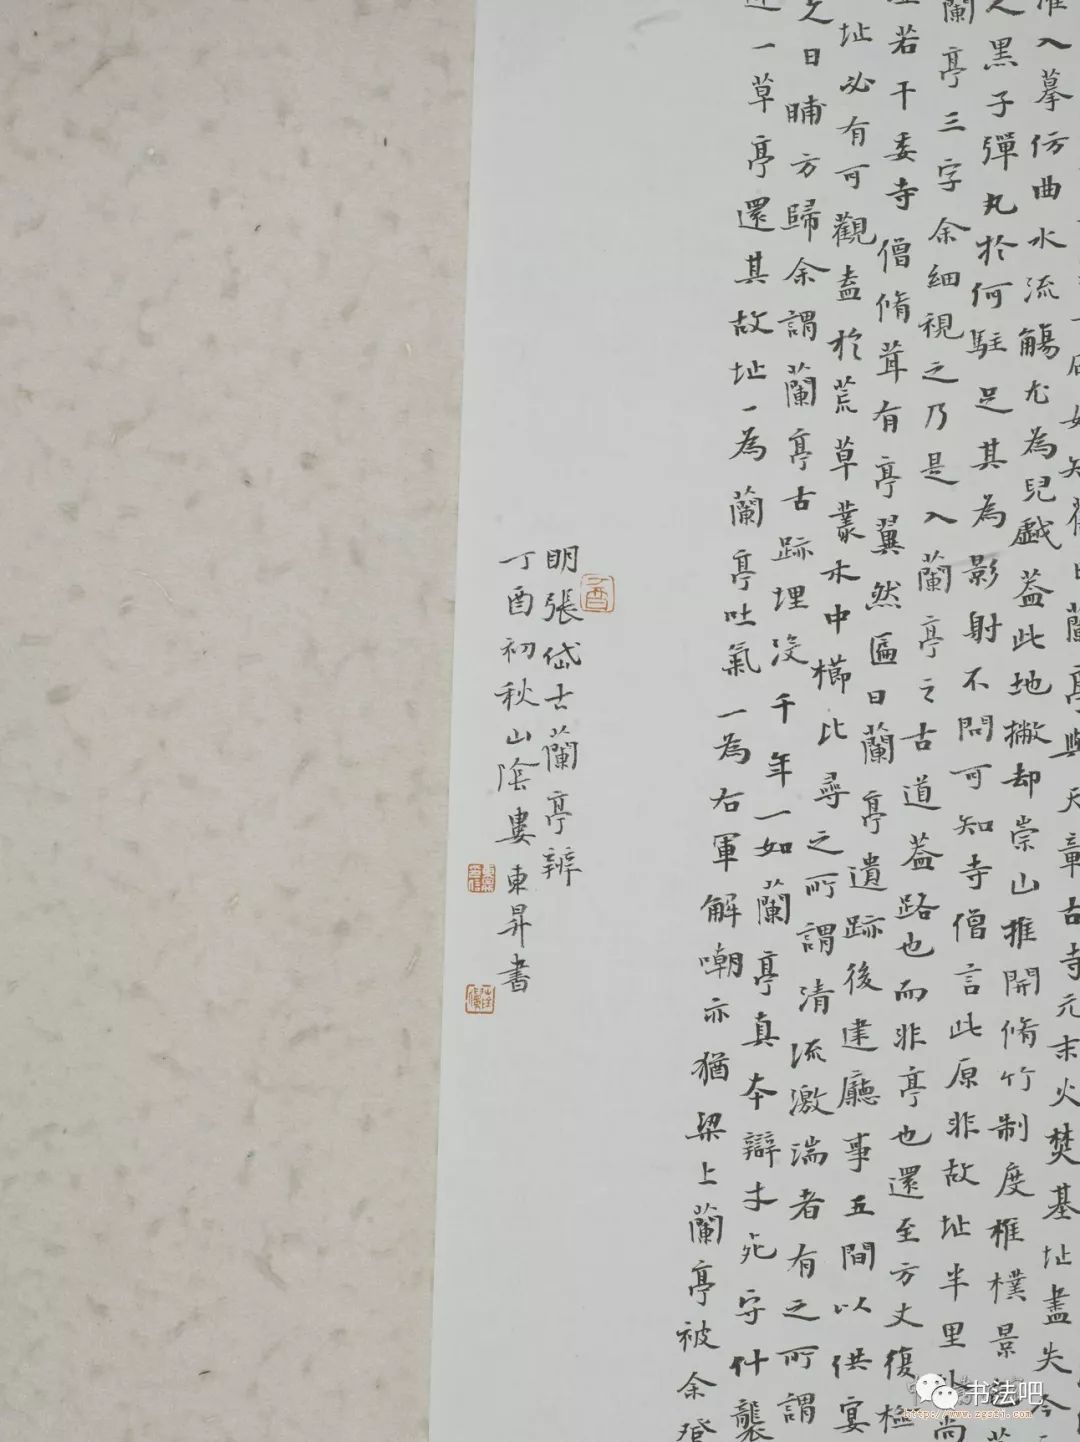 知舊日蘭亭與天章古寺元末火焚基址盡失今
入摹仿曲水流觴尤為兒戲蓋此地撇却崇山推開脩竹制度椎樸景
黑子彈丸於何駐足其為影射不問可知寺僧言此原非故址半里外尚
蘭亭三字余細視之乃是入蘭亭之古道蓋路也而非亭也還至方丈復檢
若干委寺僧脩茸有亭翼然匾日蘭亭遺跡後建廳事五間以供宴
址必有可觀盍於荒草叢木中櫛比尋之所謂清流激湍者有之所謂
人日晡方歸余謂蘭亭古跡埋没千年一如蘭亭真本辯才死守什襲
一草亭還其故址一為蘭亭吐氣一為右軍解嘲亦猶梁上蘭亭被余登
明張岱古蘭亭辨
丁酉初秋山陰婁東昇書
书法吧
http://www.zgsfj.com